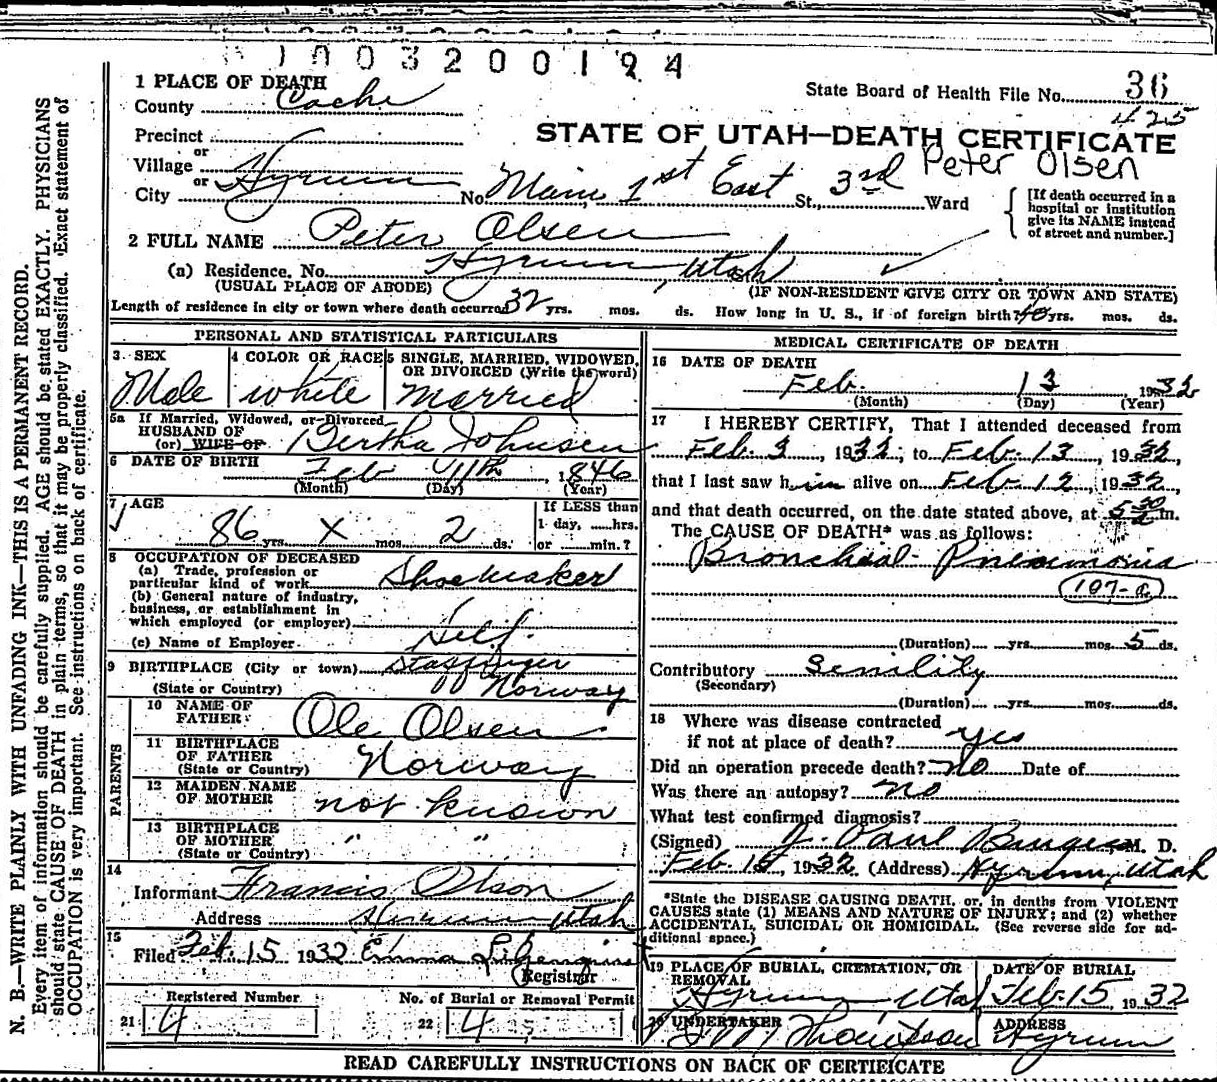 1003200194
1 PLACE OF DEATH
County Cache
State Board of Health File No. 36
425
Precinct
or
Village
or
City Hyrum
STATE OF UTAH—DEATH CERTIFICATE
Peter Olsen
No. Main, 1st East St., 3rd Ward
[If death occurred in a
hospital or institution
give its NAME instead
of street and number.]
2 FULL NAME Peter Olsen
(a) Residence. No. Hyrum, Utah
(USUAL PLACE OF ABODE)
(IF NON-RESIDENT GIVE CITY OR TOWN AND STATE)
Length of residence in city or town where death occurred 32 yrs. mos. ds. How long in U. S., if of foreign birth? 40 yrs. mos. ds.
PERSONAL AND STATISTICAL PARTICULARS
3 SEX
Male
4 COLOR OR RACE
White
5 SINGLE, MARRIED, WIDOWED,
OR DIVORCED (Write the word)
Married
5a If Married, Widowed, or Divorced
HUSBAND OF
(or) WIFE OF
Bertha Johnsen
6 DATE OF BIRTH Feb 11th, 1846
(Month) (Day) (Year)
7 AGE
86 yrs. X mos. 2 ds.
If LESS than
1 day, hrs.
or min.?
8 OCCUPATION OF DECEASED
(a) Trade, profession or
particular kind of work Shoemaker
(b) General nature of industry,
business, or establishment in
which employed (or employer)
Self.
(c) Name of Employer
9 BIRTHPLACE (City or town)
(State or Country) Norway
PARENTS
10 NAME OF
FATHER Ole Olsen
11 BIRTHPLACE
OF FATHER
(State or Country) Norway
12 MAIDEN NAME
OF MOTHER not known
13 BIRTHPLACE
OF MOTHER
(State or Country) " "
14
Informant Francis Olson
Address Hyrum Utah
15
Filed Feb. 15 1932 Emma
Registrar
Registered Number
21 4
No. of Burial or Removal Permit
22 4
MEDICAL CERTIFICATE OF DEATH
16 DATE OF DEATH
Feb. 13 1932
(Month) (Day) (Year)
17 I HEREBY CERTIFY, That I attended deceased from
Feb. 3, 1932, to Feb. 13, 1932,
that I last saw him alive on Feb 12, 1932,
and that death occurred, on the date stated above, at 5 30 m.
The CAUSE OF DEATH* was as follows:
Broncheal Pneumonia
107-a
(Duration) yrs. mos. 5 ds.
Contributory Senility
(Secondary)
(Duration) yrs. mos. ds.
18 Where was disease contracted
if not at place of death? yes
Did an operation precede death? no Date of
Was there an autopsy? no
What test confirmed diagnosis?
(Signed) J. Paul Burgess, M. D.
Feb. 15, 1932 (Address) Hyrum, Utah
*State the DISEASE CAUSING DEATH, or, in deaths from VIOLENT
CAUSES state (1) MEANS AND NATURE OF INJURY; and (2) whether
ACCIDENTAL, SUICIDAL OR HOMICIDAL. (See reverse side for ad-
ditional space.)
19 PLACE OF BURIAL, CREMATION, OR
REMOVAL
Hyrum, Utah
DATE OF BURIAL
Feb. 15 1932
20 UNDERTAKER
ADDRESS
Hyrum
READ CAREFULLY INSTRUCTIONS ON BACK OF CERTIFICATE
N. B.—WRITE PLAINLY WITH UNFADING INK—THIS IS A PERMANENT RECORD.
Every item of information should be carefully supplied. AGE should be stated EXACTLY. PHYSICIANS
should state CAUSE OF DEATH in plain terms, so that it may be properly classified. Exact statement of
OCCUPATION is very important. See instructions on back of certificate.